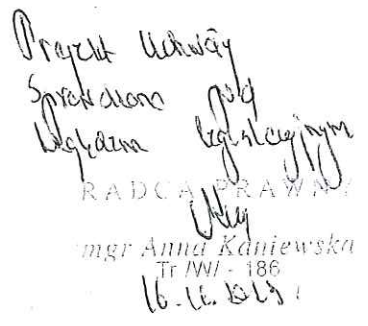 Projekt Uchwały
Sprawdzono pod
względem legislacyjnym
RADCA PRAWNY
mgr Anna Kaniewska
Tr /W/ - 186